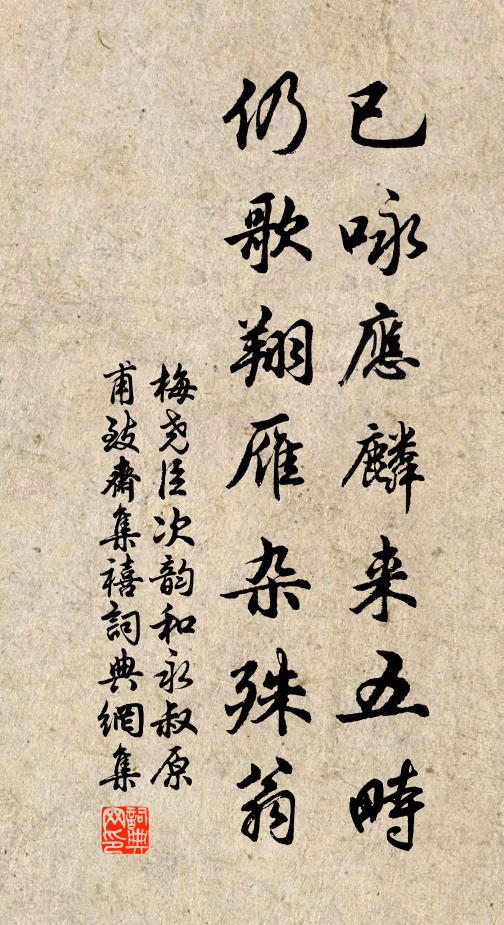 已咏應麟来五畤
仍歌翔雁杂殊翁
梅尧臣次韵和永叔原
甫致齋集禧詞典網集
詞典
网印